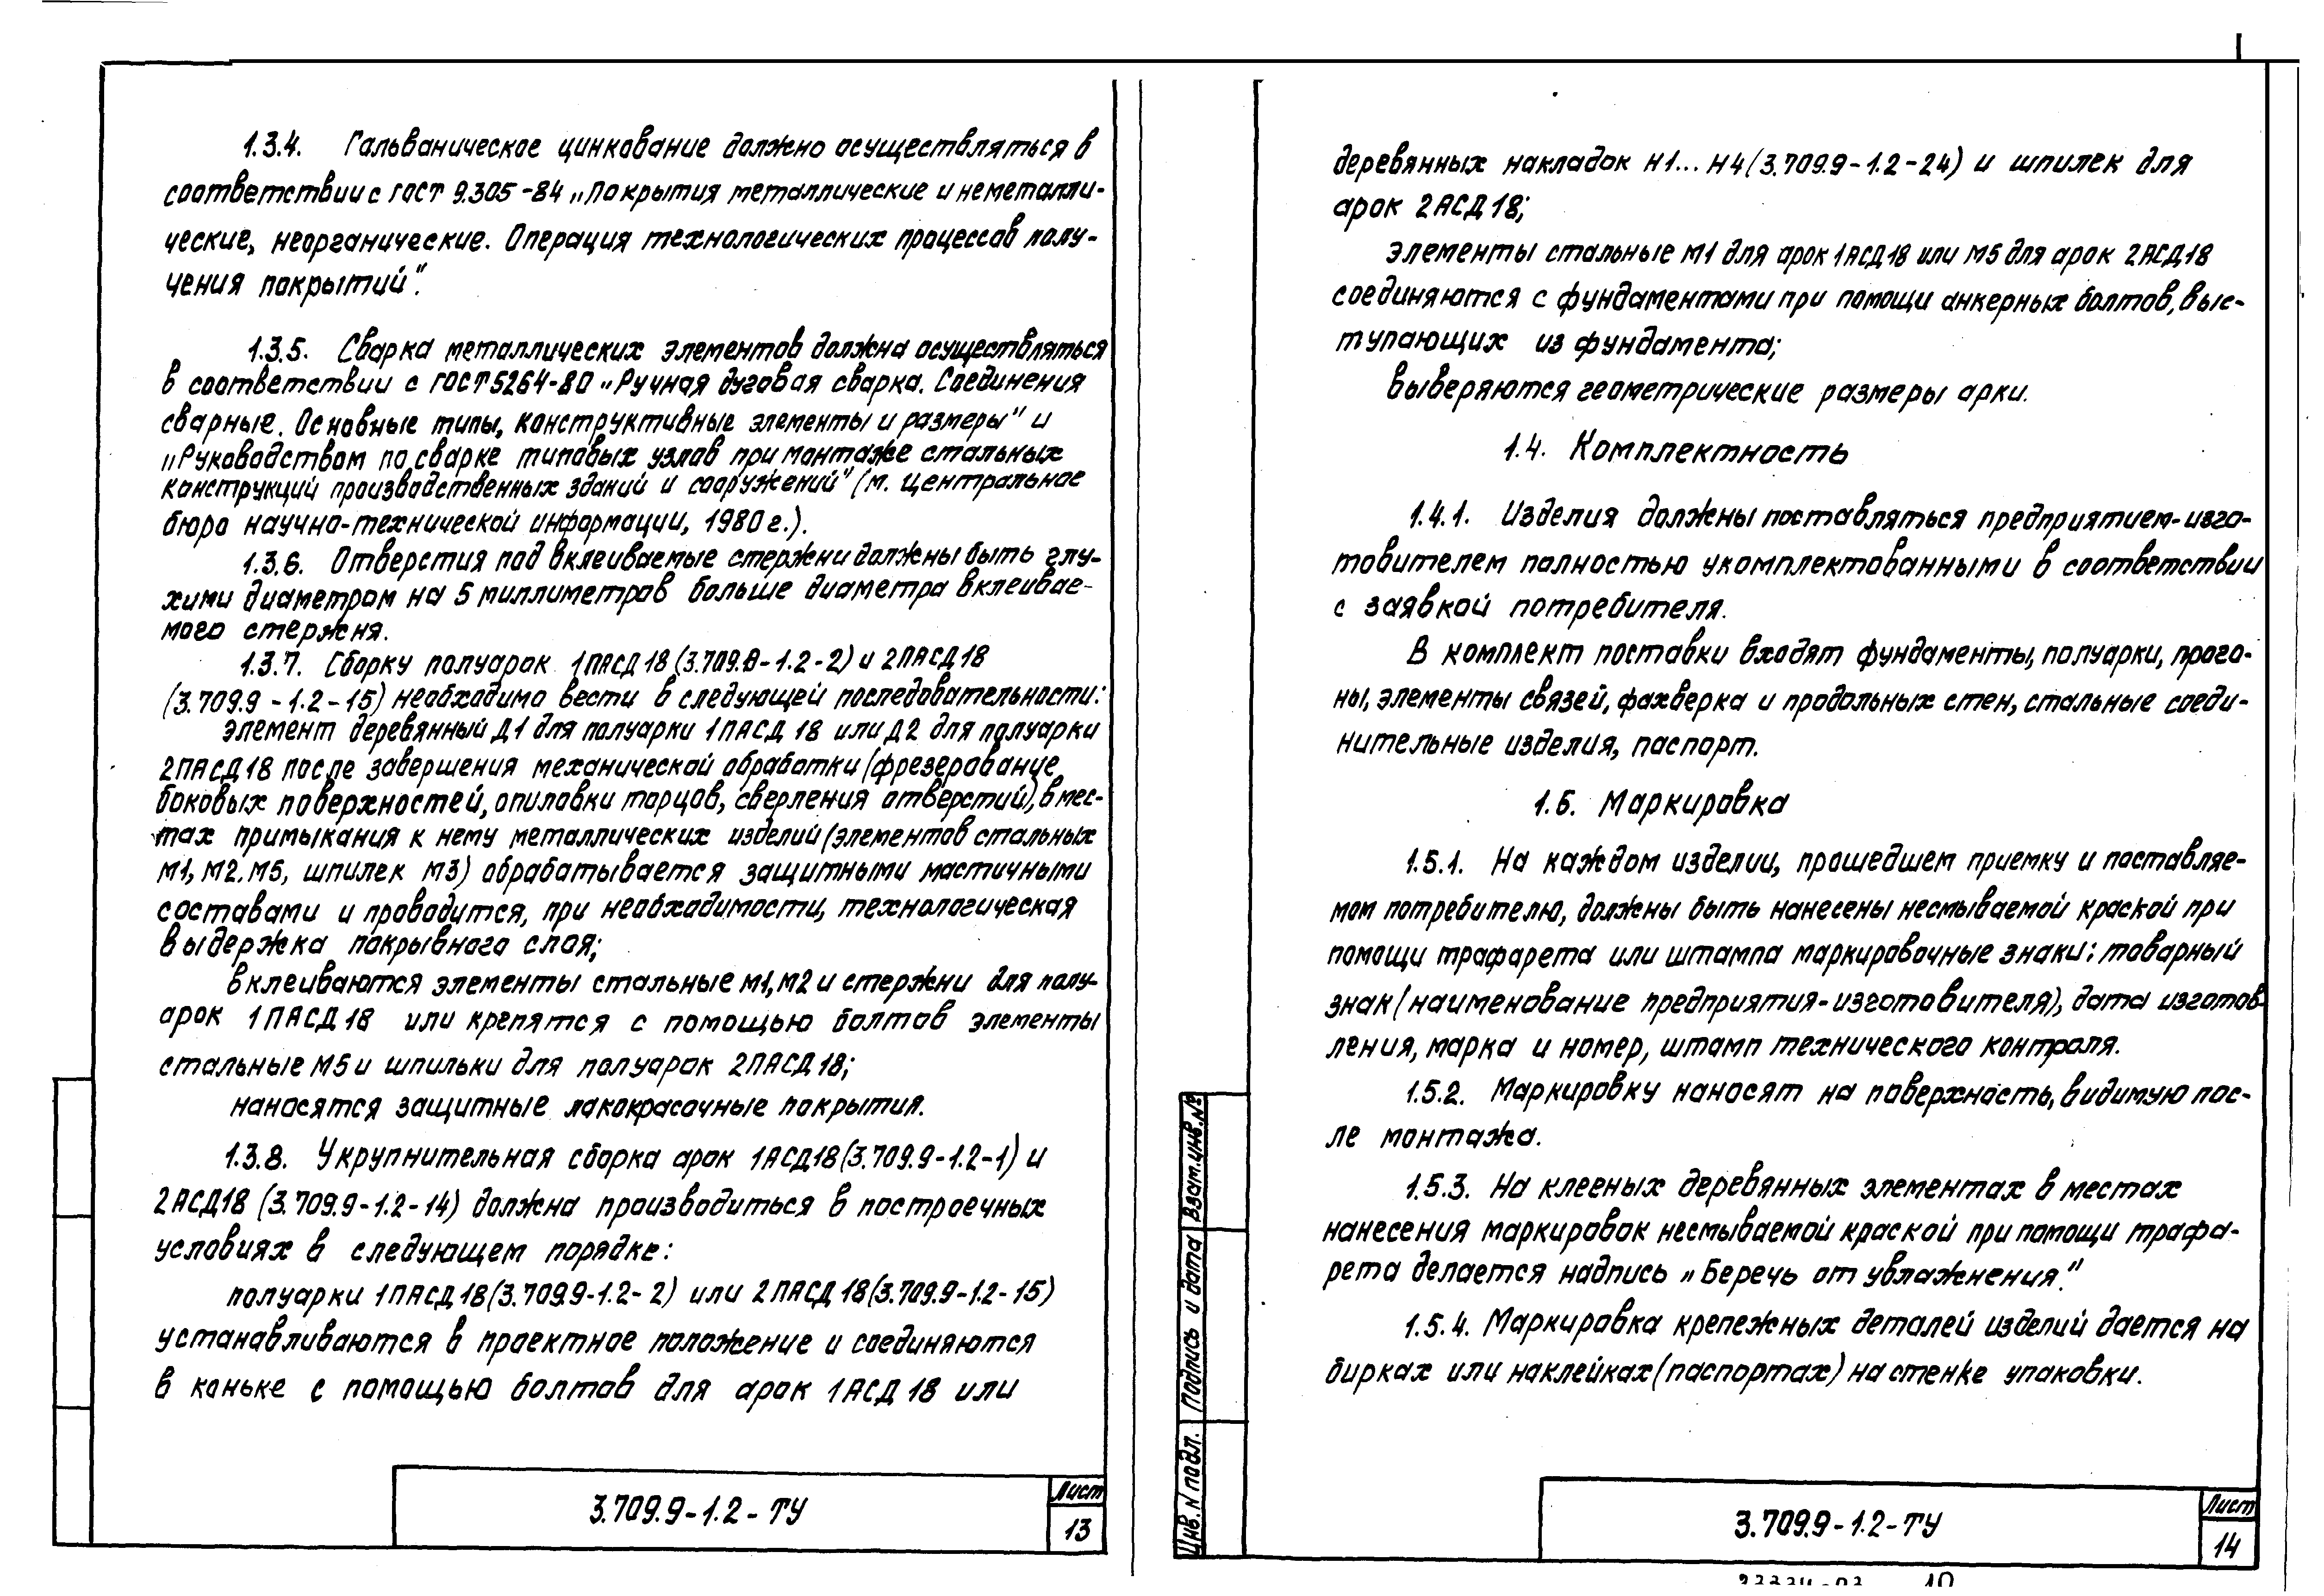 1.3.4. Гальваническое цинкование должно осуществляться в
соответствии с ГОСТ 9.305-84 „Покрытия металлические и неметалли-
ческие, неорганические. Операция технологических процессов полу-
чения покрытий".
1.3.5. Сварка металлических элементов должна осуществляться
в соответствии с ГОСТ 5264-80 „Ручная дуговая сварка. Соединения
сварные. Основные типы, конструктивные элементы и размеры" и
„Руководством по сварке типовых узлов при монтаже стальных
конструкций производственных зданий и сооружений" (м. Центральное
бюро научно-технической информации, 1980 г.).
1.3.6. Отверстия под вклеиваемые стержни должны быть глу-
хими диаметром на 5 миллиметров больше диаметра вклеивае-
мого стержня.
1.3.7. Сборку полуарок 1ПАСД18 (3.709.9-1.2-2) и 2ПАСД18
(3.709.9-1.2-15) необходимо вести в следующей последовательности:
элемент деревянный Д1 для полуарки 1ПАСД 18 или Д2 для полуарки
2ПАСД18 после завершения механической обработки (фрезерование
боковых поверхностей, опиловки торцов, сверления отверстий), в мес-
тах примыкания к нему металлических изделий (элементов стальных
М1, М2, М5, шпилек М3) обрабатывается защитными мастичными
составами и проводится, при необходимости, технологическая
выдержка покрывного слоя;
вклеиваются элементы стальные М1, М2 и стержни для полу-
арок 1ПАСД18 или крепятся с помощью болтов элементы
стальные М5 и шпильки для полуарок 2ПАСД18;
наносятся защитные лакокрасочные покрытия.
1.3.8. Укрупнительная сборка арок 1АСД18 (3.709.9-1.2-1) и
2АСД18 (3.709.9-1.2-14) должна производиться в построечных
условиях в следующем порядке:
полуарки 1ПАСД18 (3.709.9-1.2-2) или 2ПАСД18 (3.709.9-1.2-15)
устанавливаются в проектное положение и соединяются
в коньке с помощью болтов для арок 1АСД18 или
3.709.9-1.2-ТУ
Лист
13
деревянных накладок Н1... Н4 (3.709.9-1.2-24) и шпилек для
арок 2АСД18;
элементы стальные М1 для арок 1АСД18 или М5 для арок 2АСД18
соединяются с фундаментами при помощи анкерных болтов, выс-
тупающих из фундамента;
выверяются геометрические размеры арки.
1.4. Комплектность
1.4.1. Изделия должны поставляться предприятием-изго-
товителем полностью укомплектованными в соответствии
с заявкой потребителя.
В комплект поставки входят фундаменты, полуарки, прого-
ны, элементы связей, фахверка и продольных стен, стальные соеди-
нительные изделия, паспорт.
1.5. Маркировка
1.5.1. На каждом изделии, прошедшем приемку и поставляе-
мом потребителю, должны быть нанесены несмываемой краской при
помощи трафарета или штампа маркировочные знаки: товарный
знак (наименование предприятия-изготовителя), дата изготов-
ления, марка и номер, штамп технического контроля.
1.5.2. Маркировку наносят на поверхность, видимую пос-
ле монтажа.
1.5.3. На клееных деревянных элементах в местах
нанесения маркировок несмываемой краской при помощи трафа-
рета делается надпись „Беречь от увлажнения."
1.5.4. Маркировка крепежных деталей изделий дается на
бирках или наклейках (паспортах) на стенке упаковки.
Инв. N подл. Подпись и дата Взам. инв. №
3.709.9-1.2-ТУ
Лист
14
10